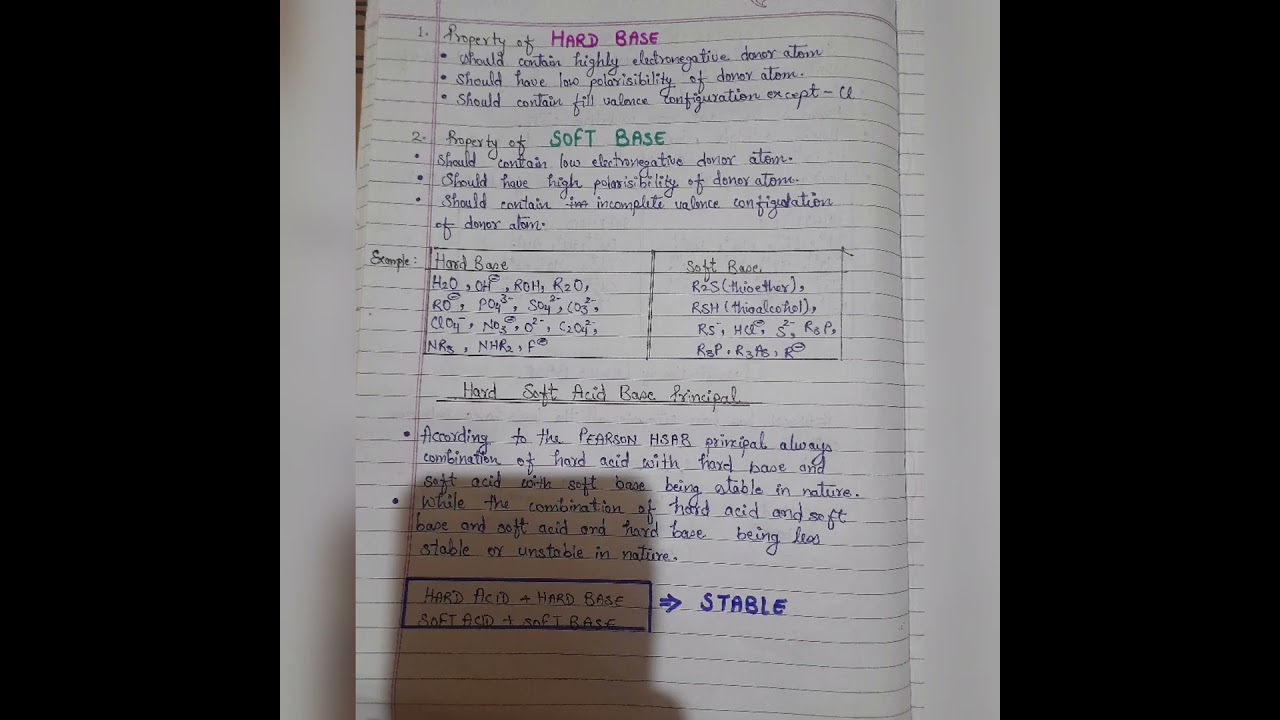 1. Property of HARD BASE
• Should contain highly electronegative donor atom
• Should have low polarisibility of donor atom.
• Should contain fill valence configuration except - Cl
2. Property of SOFT BASE
• Should contain low electronegative donor atom.
• Should have high polarisibility of donor atom.
• Should contain incomplete valence configuration
of donor atom.
Example: Hard Base Soft Base
H2O, OH⊖, ROH, R2O, R2S (thioether),
RO⊖, PO4³⁻, SO4²⁻, CO3²⁻, RSH (thioalcohol),
ClO4⁻, NO3⊖, O²⁻, C2O4²⁻, RS⁻, S²⁻, R3P,
NR3, NHR2, F⊖ R3P, R3As, R⊖
Hard Soft Acid Base Principal
• According to the PEARSON HSAB principal always
combination of hard acid with hard base and
soft acid with soft base being stable in nature.
• While the combination of hard acid and soft
base and soft acid and hard base being less
stable or unstable in nature.
HARD ACID + HARD BASE ⇒ STABLE
SOFT ACID + SOFT BASE